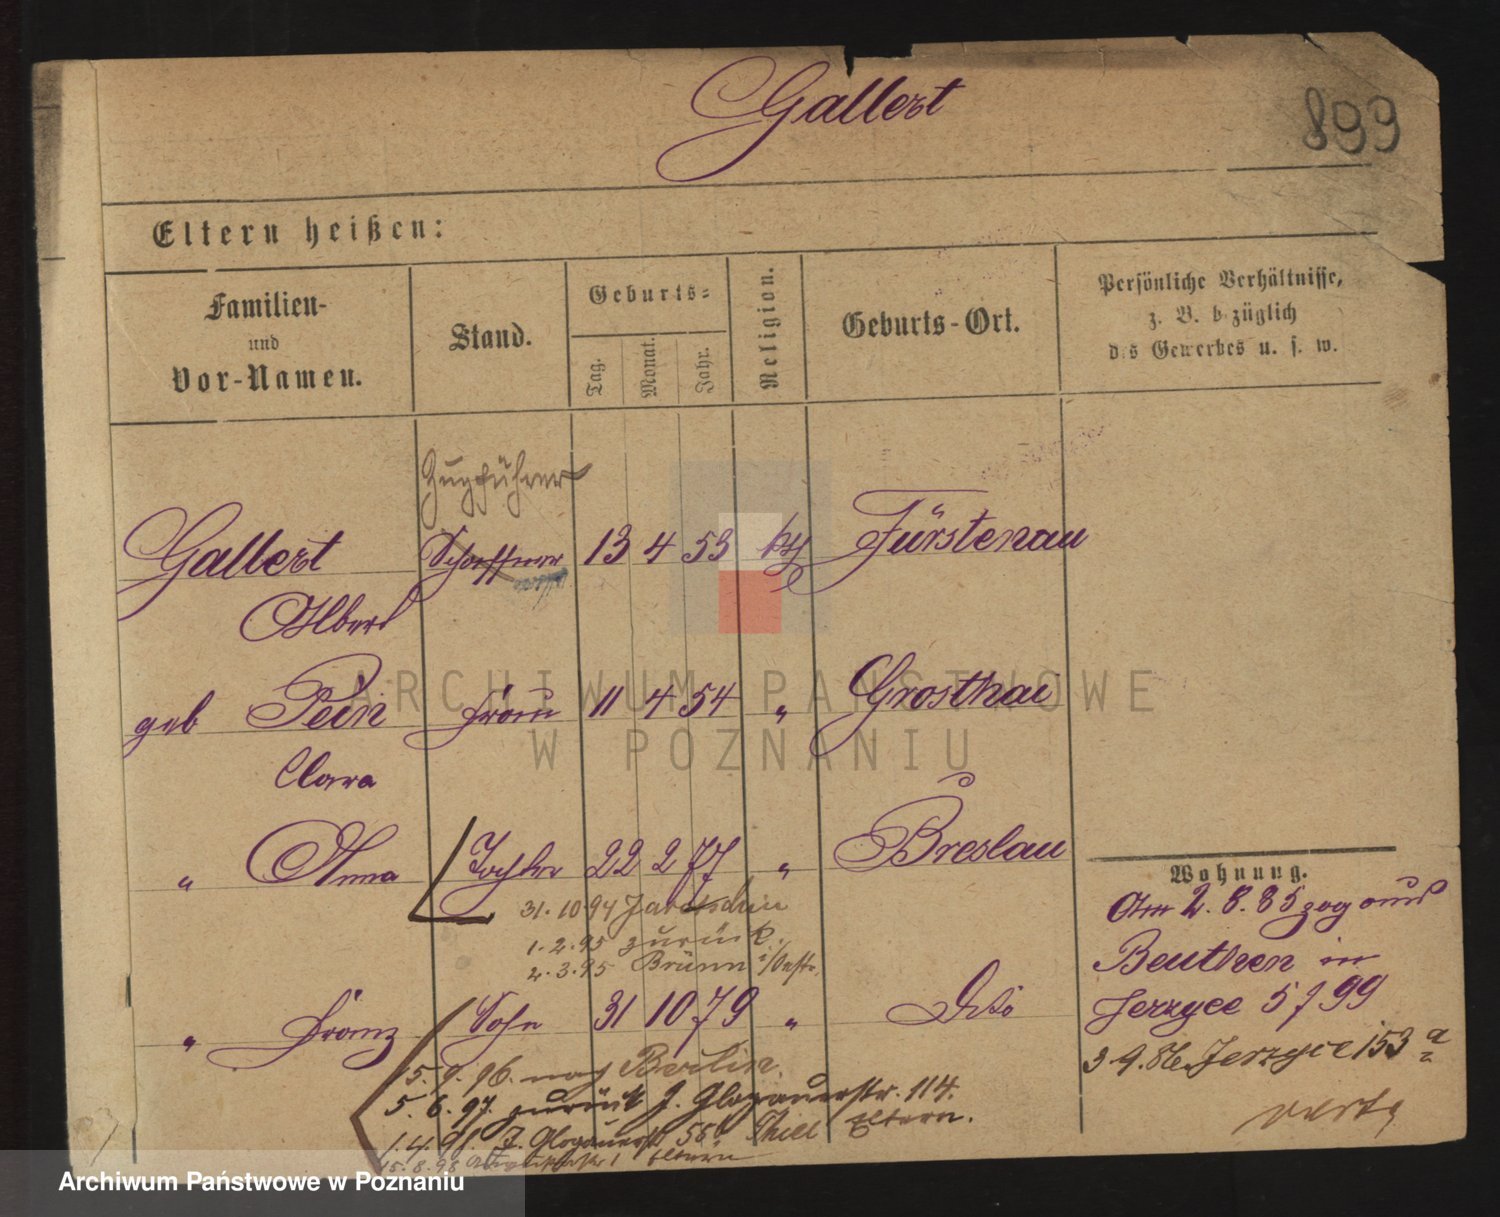 Gallert
899
Eltern heißen:
Familien-
und
Vor-Namen.
Stand.
Geburts-
Tag.
Monat.
Jahr.
Religion.
Geburts-Ort.
Persönliche Verhältnisse,
z. B. bezüglich
des Gewerbes u. s. w.
Zugführer
Gallert Schaffner 13 4 53 kth Fürstenau
Albert
geb Pein Frau 11 4 54 " Grosthal
Clara
" Anna Tochter 22 2 77 " Breslau
31. 10 94 Jarotschin
1. 2. 95 zurück
2. 3. 95 Brünn i/Oestr.
" Franz Sohn 31 10 79 " Dito
5. 9. 96. nach Berlin.
5. 6. 97. zurück J. Glogauerstr. 114.
1. 4. 98. J. Glogauerstr 56 Thiel Eltern.
15. 8. 98 Eltern
Wohnung.
Am 2. 8. 85 zog aus
Beuthen in
Jerzyce 5 f 99
3 9. 86. Jerzyce 153 a
verte
ARCHIWUM PAŃSTWOWE
W POZNANIU
Archiwum Państwowe w Poznaniu